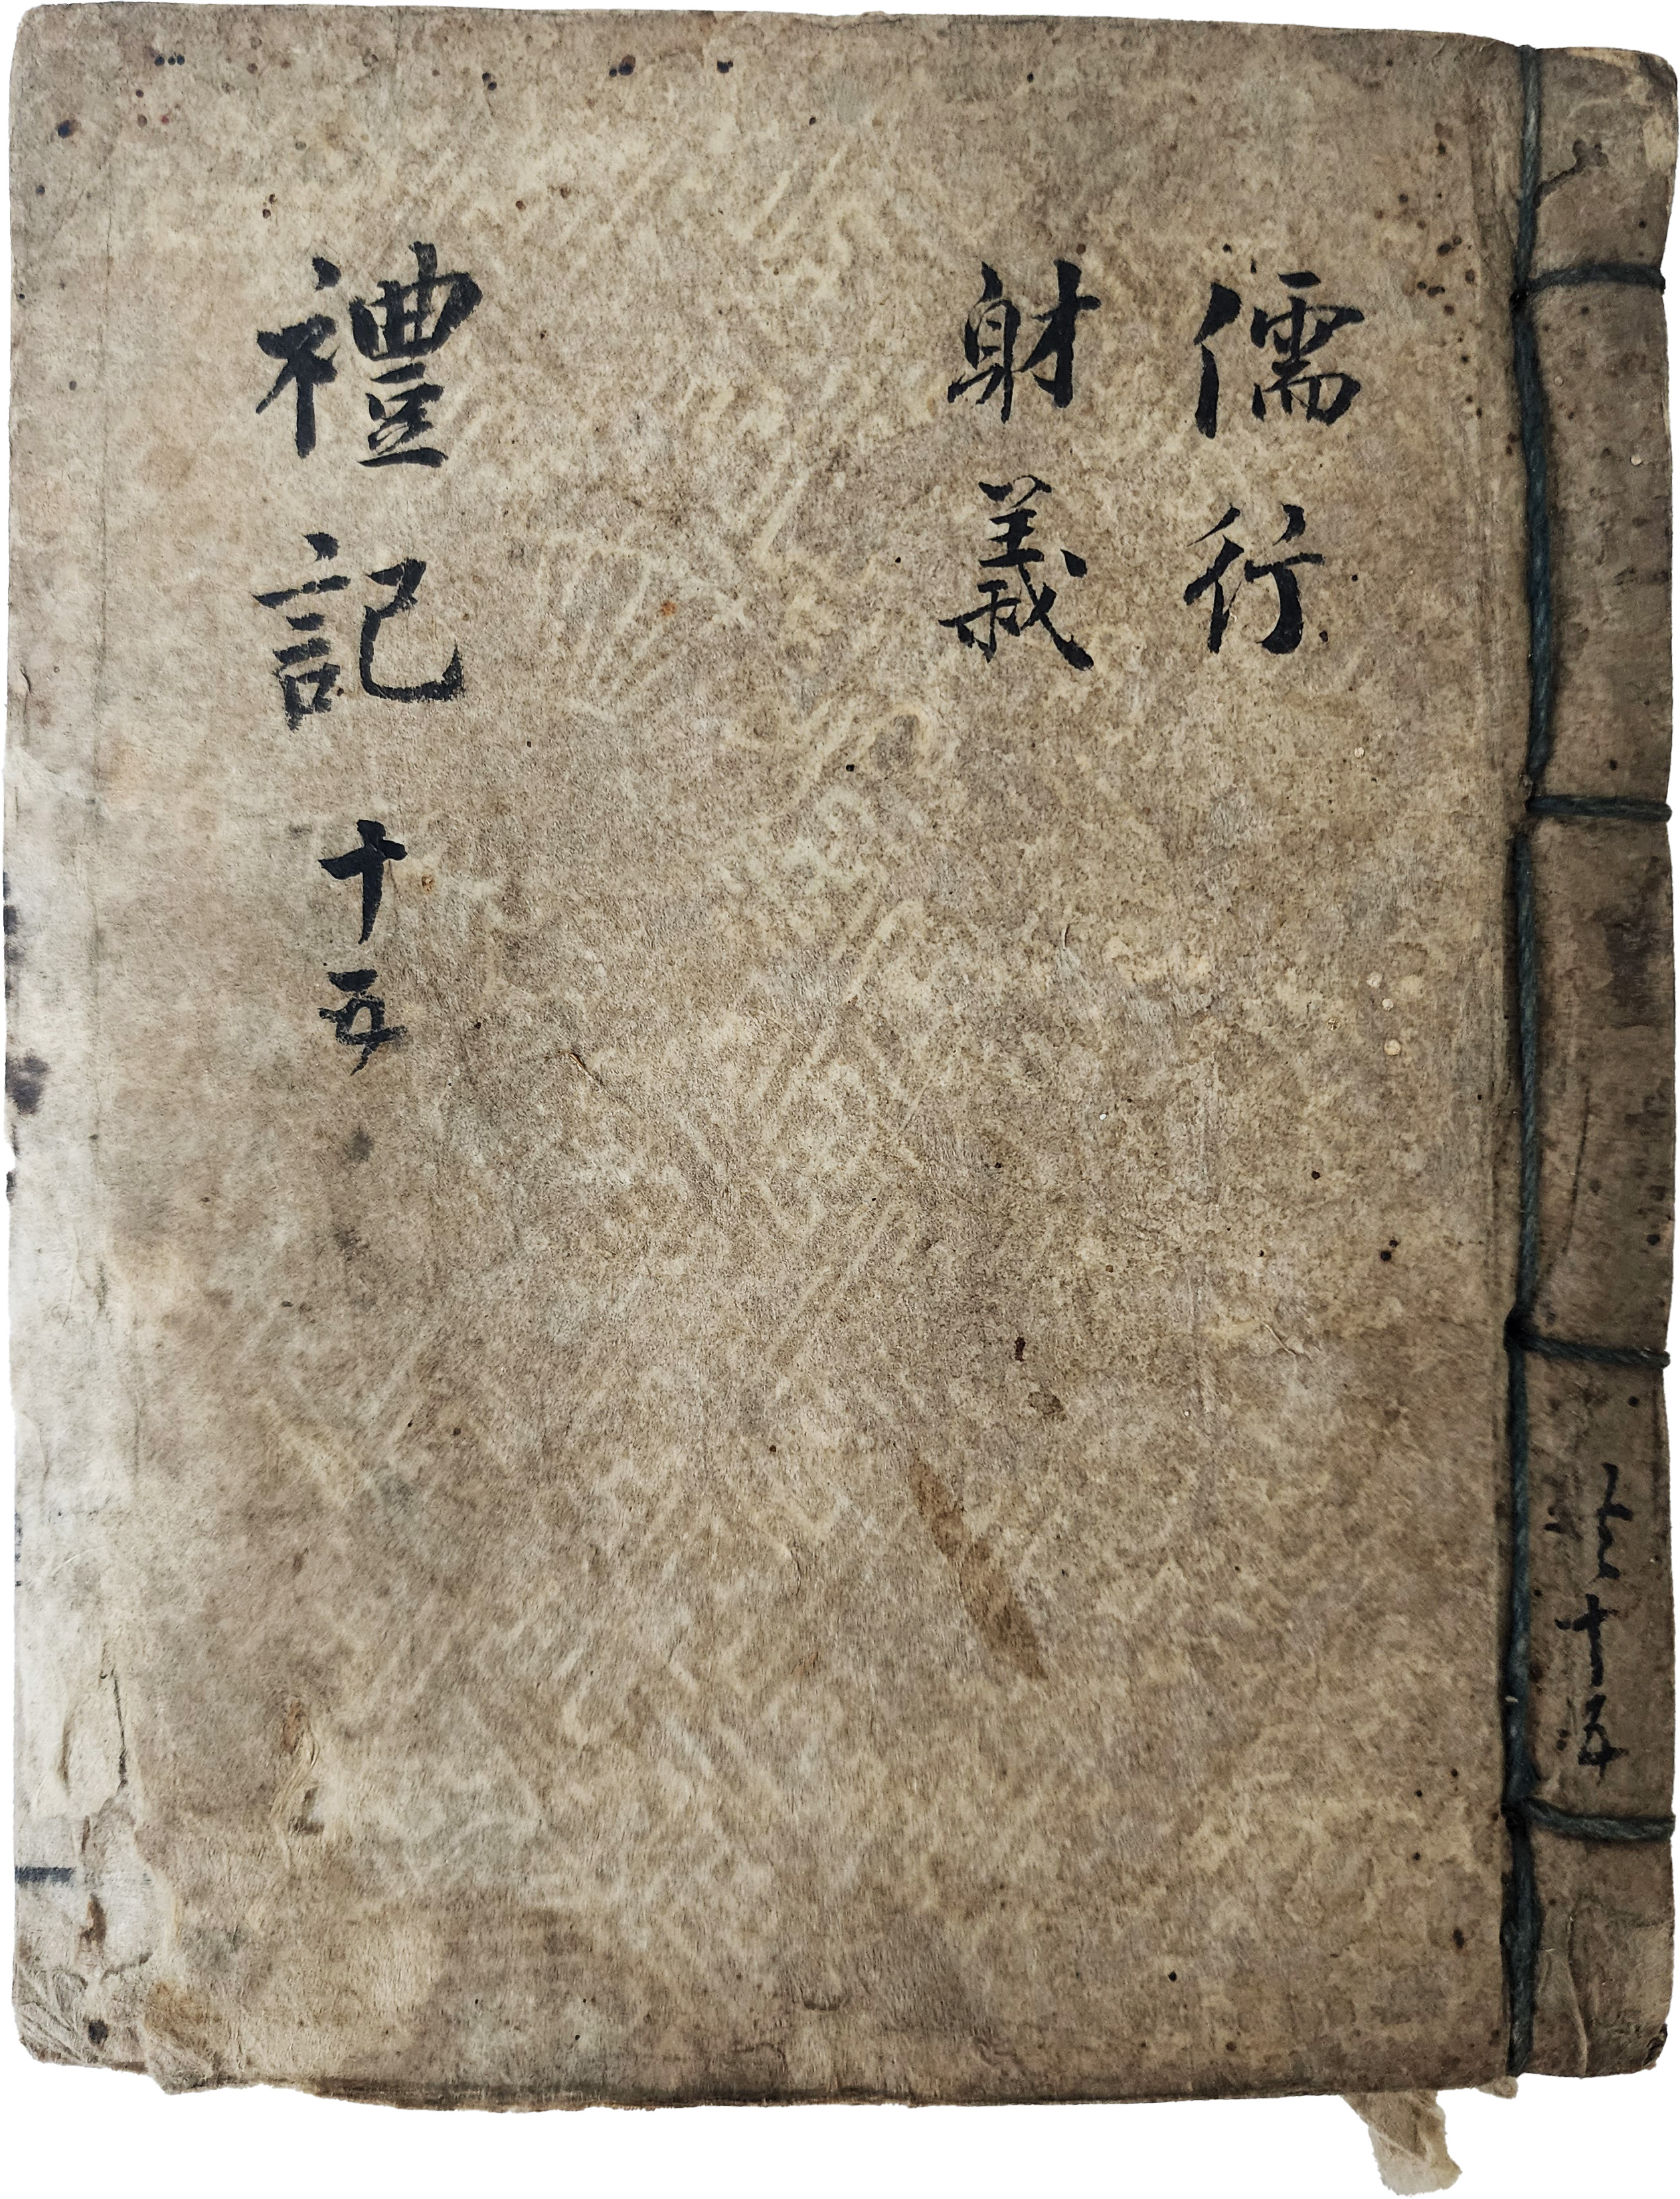 共十五
儒行
射義
禮記 十五